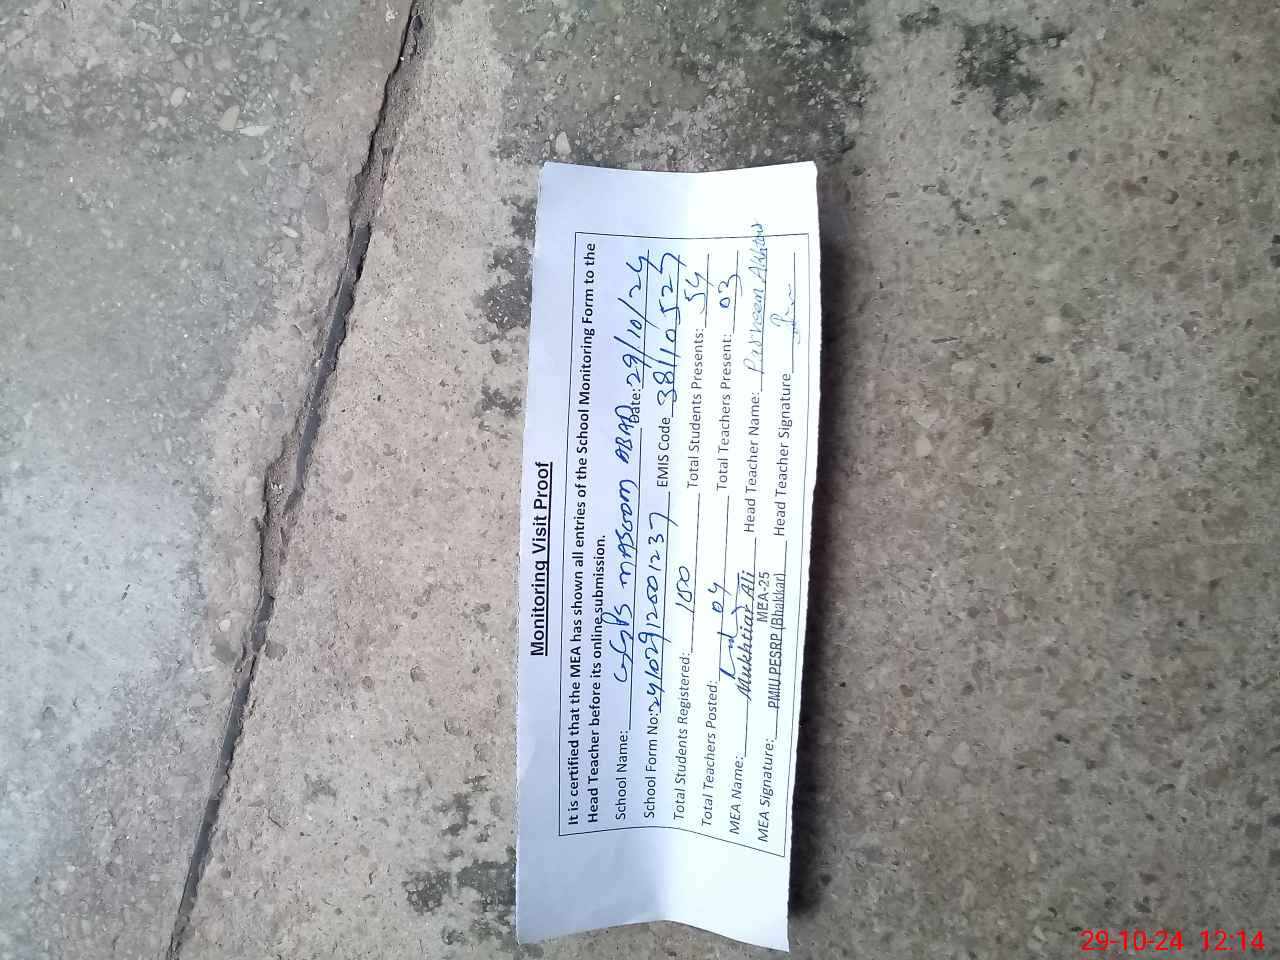 Monitoring Visit Proof
It is certified that the MEA has shown all entries of the School Monitoring Form to the
Head Teacher before its online submission.
School Name: GGPS MASOOM ABAD Date: 29/10/24
School Form No: 29102912001237 EMIS Code 38110527
Total Students Registered: 100 Total Students Presents: 54
Total Teachers Posted: 04 Total Teachers Present: 03
MEA Name: Mukhtiar Ali Head Teacher Name: Parveen Akhtar
MEA-25
MEA Signature: PMIU PESRP (Bhakkar) Head Teacher Signature
29-10-24 12:14